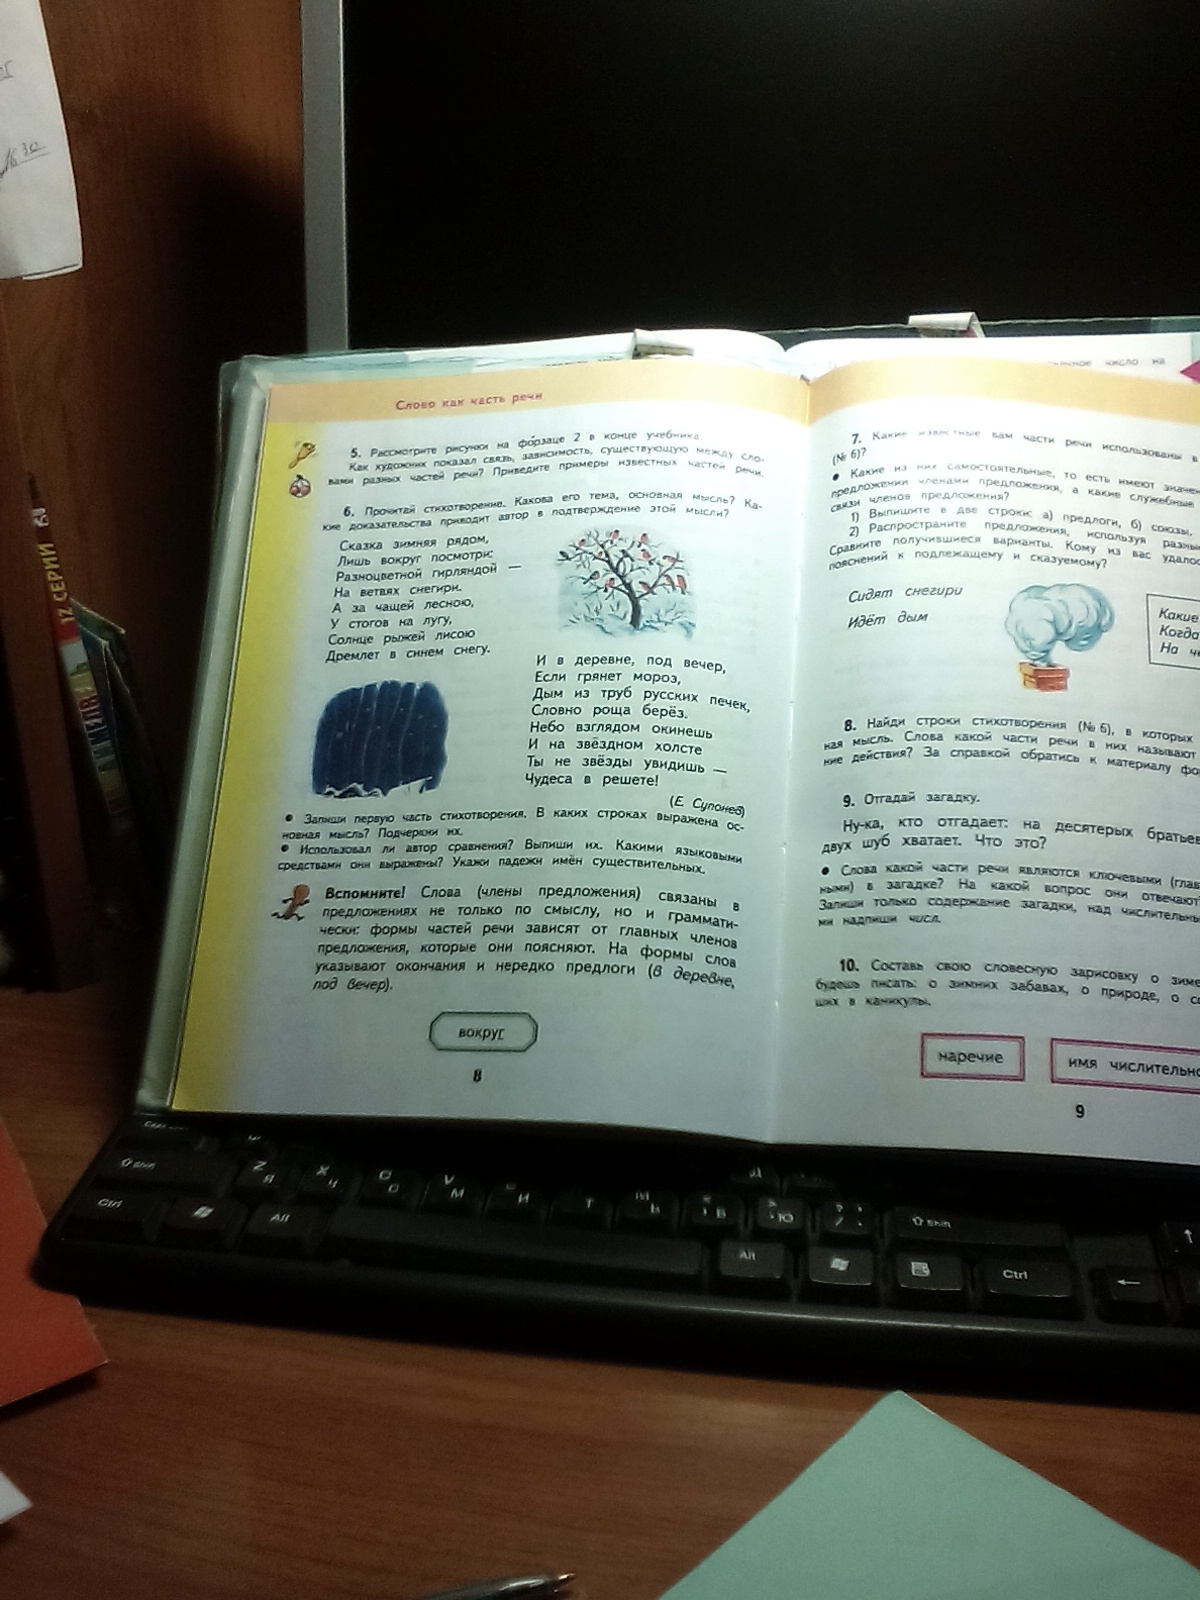 Слово как часть речи
5. Рассмотрите рисунки на форзаце 2 в конце учебника
Как художник показал связь, зависимость, существующую между сло-
вами разных частей речи? Приведите примеры известных частей речи.
6. Прочитай стихотворение. Какова его тема, основная мысль? Ка-
кие доказательства приводит автор в подтверждение этой мысли?
Сказка зимняя рядом,
Лишь вокруг посмотри:
Разноцветной гирляндой —
На ветвях снегири.
А за чащей лесною,
У стогов на лугу,
Солнце рыжей лисою
Дремлет в синем снегу.
И в деревне, под вечер,
Если грянет мороз,
Дым из труб русских печек,
Словно роща берёз.
Небо взглядом окинешь
И на звёздном холсте
Ты не звёзды увидишь —
Чудеса в решете!
(Е. Супонев)
• Запиши первую часть стихотворения. В каких строках выражена ос-
новная мысль? Подчеркни их.
• Использовал ли автор сравнения? Выпиши их. Какими языковыми
средствами они выражены? Укажи падежи имён существительных.
Вспомните! Слова (члены предложения) связаны в
предложениях не только по смыслу, но и граммати-
чески: формы частей речи зависят от главных членов
предложения, которые они поясняют. На формы слов
указывают окончания и нередко предлоги (в деревне,
под вечер).
вокруг
8
число на
7. Какие известные вам части речи использованы в
(№ 6)?
• Какие из них самостоятельные, то есть имеют
предложении членами предложения, а какие служебные
связи членов предложения?
1) Выпишите в две строки: а) предлоги, б) союзы.
2) Распространите предложения, используя
Сравните получившиеся варианты. Кому из вас
пояснений к подлежащему и сказуемому?
Сидят снегири
Идёт дым
Какие
Когда
На
8. Найди строки стихотворения (№ 6), в которых
ная мысль. Слова какой части речи в них называют
ние действия? За справкой обратись к материалу
9. Отгадай загадку.
Ну-ка, кто отгадает: на десятерых братьев
двух шуб хватает. Что это?
• Слова какой части речи являются ключевыми
ными) в загадке? На какой вопрос они отвечают?
Запиши только содержание загадки, над
ми надпиши числ.
10. Составь свою словесную зарисовку о зиме
будешь писать: о зимних забавах, о природе, о
ших в каникулы.
наречие
имя числительно
9
12 СЕРИЙ
Shift
Z Я
X Ч
C С
V М
И
Т
М Ь
Б
Ю
Shift
Ctrl
Alt
Alt
Ctrl
Д